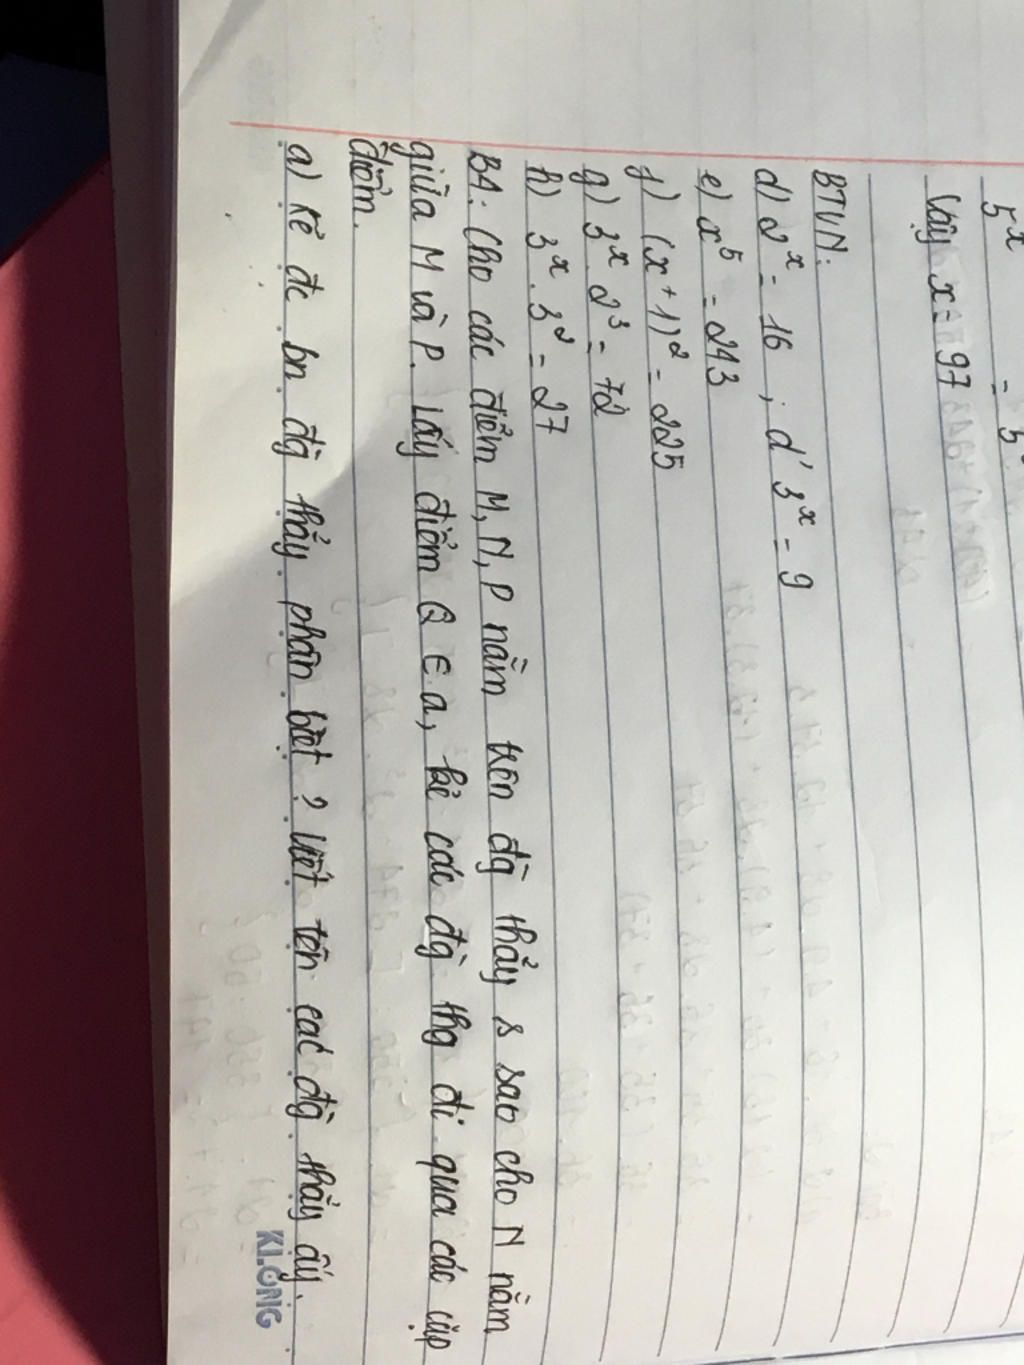 5^x = 5
Vậy x = 97
BTVN:
d) 2^x = 16 ; d' 3^x = 9
e) x^5 = 243
f) (x+1)^2 = 225
g) 3^x . 2^3 = 72
h) 3^x . 3^2 = 27
B4: Cho các điểm M, N, P nằm trên đg thẳg s sao cho N nằm
giữa M và P. Lấy điểm Q ∈ a, kẻ các đg thg đi qua các cặp
điểm.
a) Kẻ đc bn đg thẳg phân biệt? Viết tên các đg thẳg ấy.
KLONG